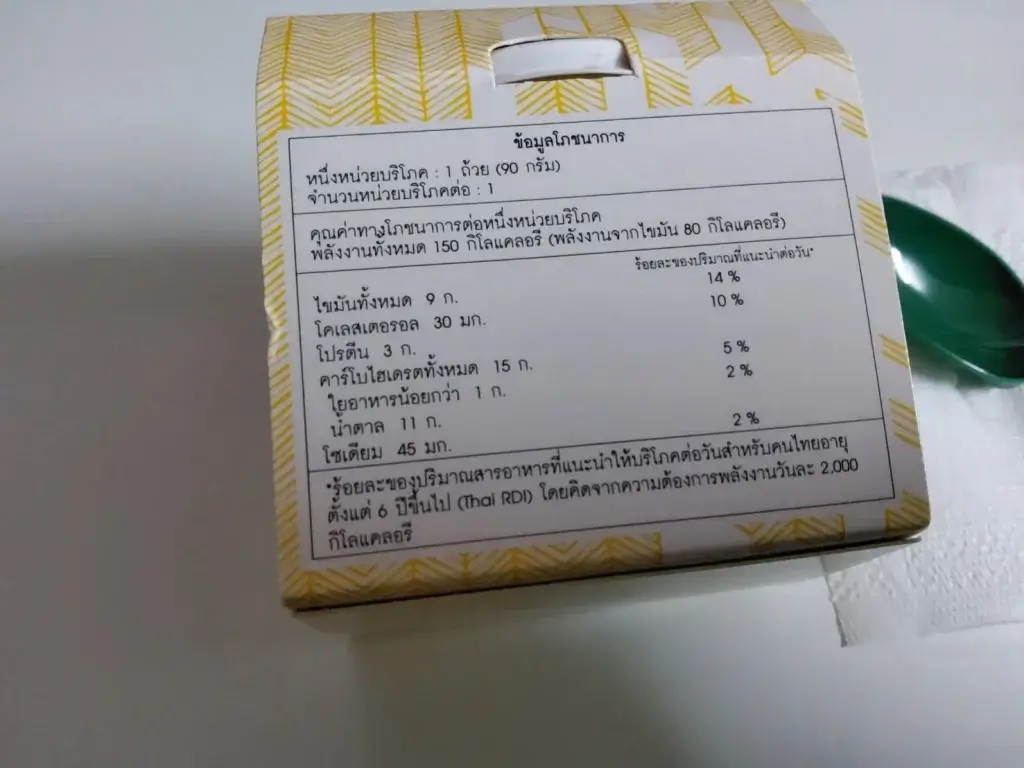 ข้อมูลโภชนาการ
หนึ่งหน่วยบริโภค : 1 ถ้วย (90 กรัม)
จำนวนหน่วยบริโภคต่อ : 1
คุณค่าทางโภชนาการต่อหนึ่งหน่วยบริโภค
พลังงานทั้งหมด 150 กิโลแคลอรี (พลังงานจากไขมัน 80 กิโลแคลอรี)
ร้อยละของปริมาณที่แนะนำต่อวัน*
ไขมันทั้งหมด 9 ก. 14 %
โคเลสเตอรอล 30 มก. 10 %
โปรตีน 3 ก.
คาร์โบไฮเดรตทั้งหมด 15 ก. 5 %
ใยอาหารน้อยกว่า 1 ก. 2 %
น้ำตาล 11 ก.
โซเดียม 45 มก. 2 %
*ร้อยละของปริมาณสารอาหารที่แนะนำให้บริโภคต่อวันสำหรับคนไทยอายุ
ตั้งแต่ 6 ปีขึ้นไป (Thai RDI) โดยคิดจากความต้องการพลังงานวันละ 2,000
กิโลแคลอรี